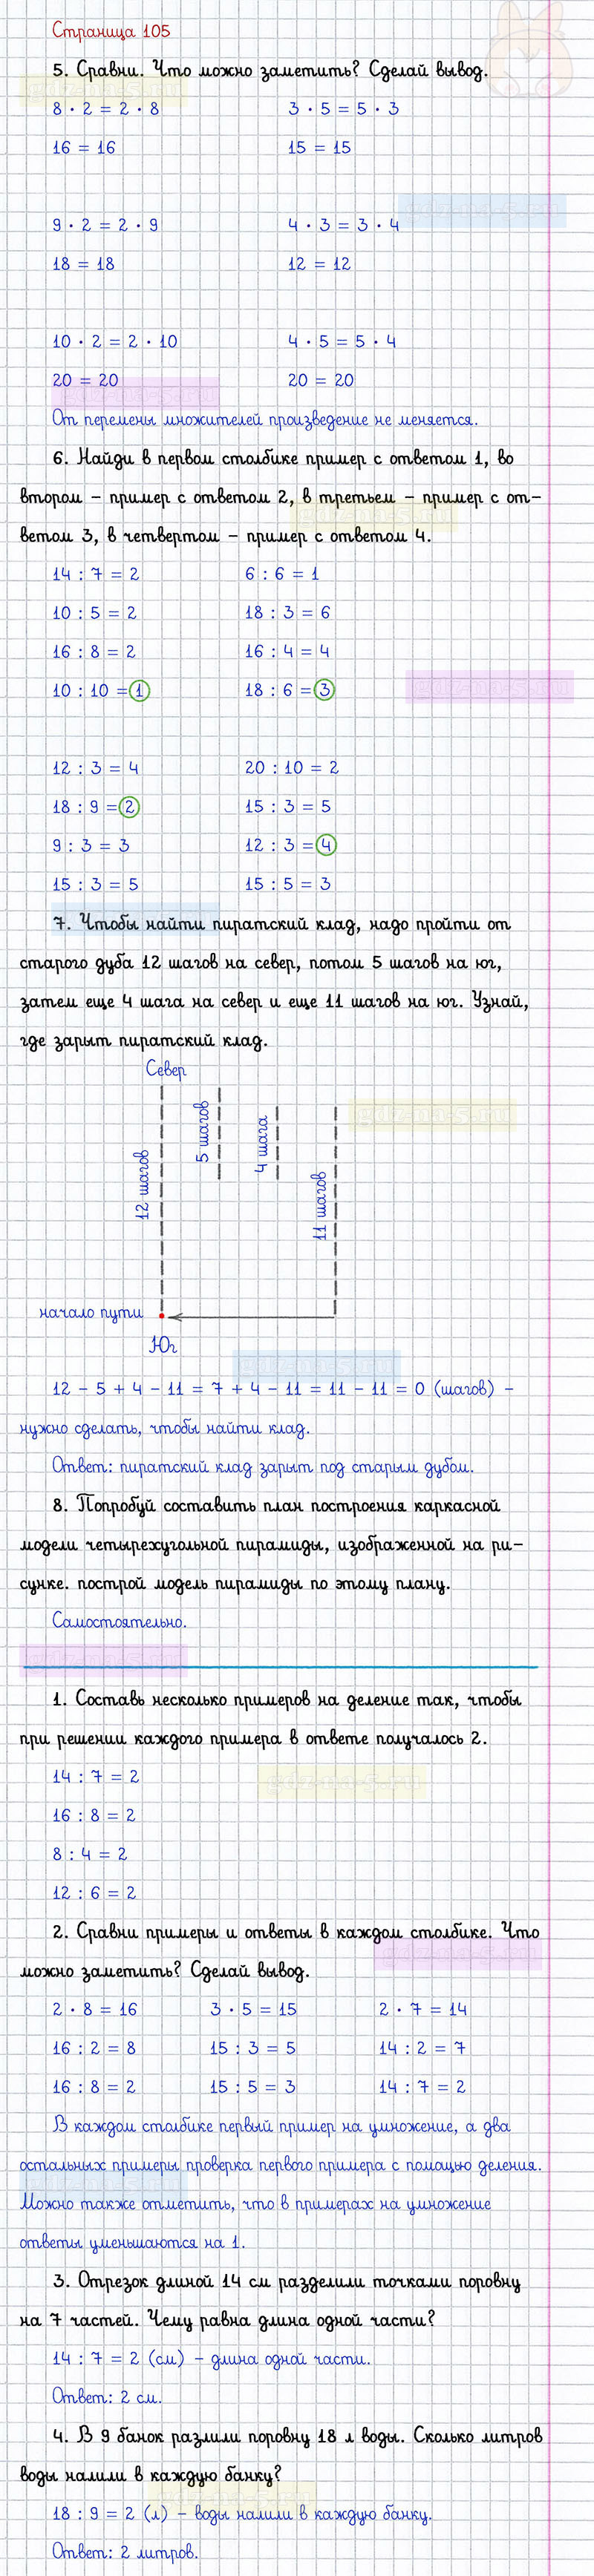 Страница 105
5. Сравни. Что можно заметить? Сделай вывод.
gdz-na-5.ru
8 · 2 = 2 · 8 3 · 5 = 5 · 3
16 = 16 15 = 15
gdz-na-5.ru
9 · 2 = 2 · 9 4 · 3 = 3 · 4
18 = 18 12 = 12
10 · 2 = 2 · 10 4 · 5 = 5 · 4
20 = 20 20 = 20
gdz-na-5.ru
От перемены множителей произведение не меняется.
6. Найди в первом столбике пример с ответом 1, во
втором – пример с ответом 2, в третьем – пример с от-
gdz-na-5.ru
ветом 3, в четвертом – пример с ответом 4.
14 : 7 = 2 6 : 6 = 1
10 : 5 = 2 18 : 3 = 6
16 : 8 = 2 16 : 4 = 4
10 : 10 = 1 18 : 6 = 3
gdz-na-5.ru
12 : 3 = 4 20 : 10 = 2
18 : 9 = 2 15 : 3 = 5
9 : 3 = 3 12 : 3 = 4
15 : 3 = 5 15 : 5 = 3
7. Чтобы найти пиратский клад, надо пройти от
старого дуба 12 шагов на север, потом 5 шагов на юг,
затем еще 4 шага на север и еще 11 шагов на юг. Узнай,
где зарыт пиратский клад.
Север
12 шагов
5 шагов
4 шага
11 шагов
gdz-na-5.ru
начало пути
Юг
gdz-na-5.ru
12 – 5 + 4 – 11 = 7 + 4 – 11 = 11 – 11 = 0 (шагов) –
нужно сделать, чтобы найти клад.
Ответ: пиратский клад зарыт под старым дубом.
8. Попробуй составить план построения каркасной
модели четырехугольной пирамиды, изображенной на ри-
сунке. построй модель пирамиды по этому плану.
Самостоятельно.
gdz-na-5.ru
1. Составь несколько примеров на деление так, чтобы
при решении каждого примера в ответе получалось 2.
14 : 7 = 2
gdz-na-5.ru
16 : 8 = 2
8 : 4 = 2
12 : 6 = 2
2. Сравни примеры и ответы в каждом столбике. Что
можно заметить? Сделай вывод.
2 · 8 = 16 3 · 5 = 15 2 · 7 = 14
16 : 2 = 8 15 : 3 = 5 14 : 2 = 7
16 : 8 = 2 15 : 5 = 3 14 : 7 = 2
В каждом столбике первый пример на умножение, а два
остальных примеры проверка первого примера с помощью деления.
Можно также отметить, что в примерах на умножение
ответы уменьшаются на 1.
3. Отрезок длиной 14 см разделили точками поровну
на 7 частей. Чему равна длина одной части?
14 : 7 = 2 (см) – длина одной части.
Ответ: 2 см.
4. В 9 банок разлили поровну 18 л воды. Сколько литров
воды налили в каждую банку?
gdz-na-5.ru
18 : 9 = 2 (л) – воды налили в каждую банку.
Ответ: 2 литров.